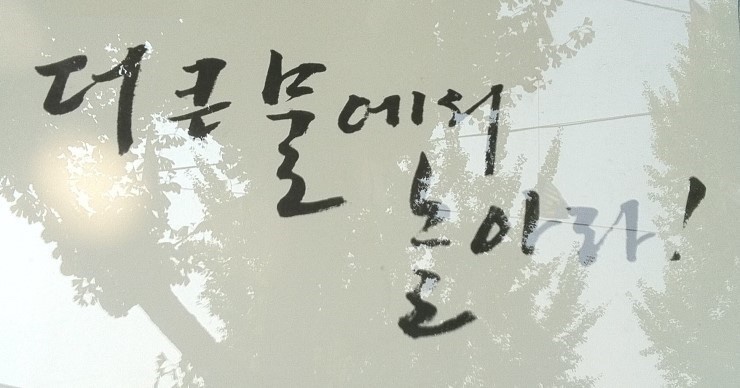 더 큰 물에서
놀아라!